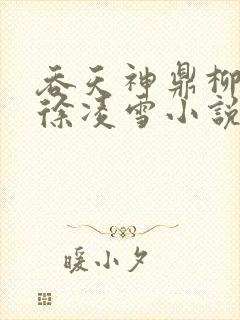 吞天神鼎柳
徐凌雪小說
暖小夕